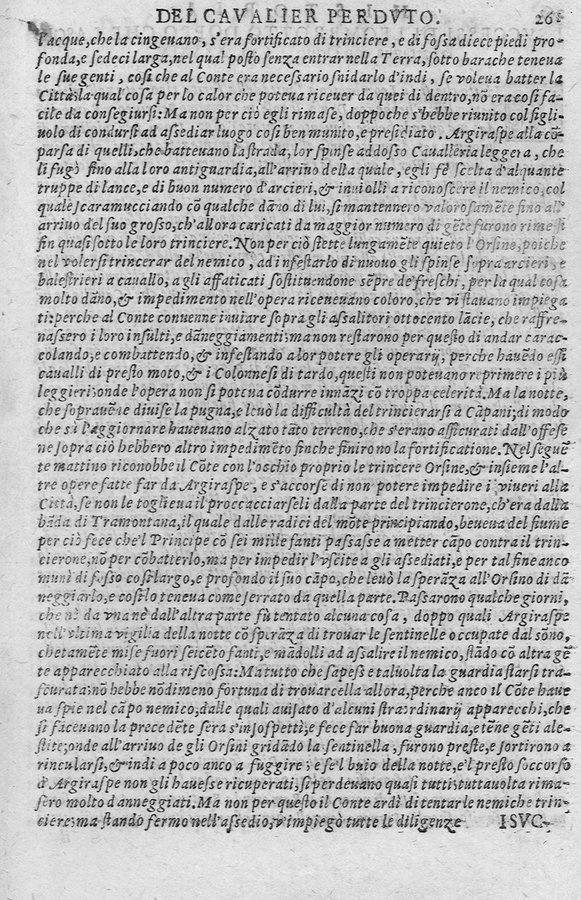 DEL CAVALIER PERDVTO. 261
l'acque, che la cingevano, s'era fortificato di trinciere, e di fossa diece piedi pro-
fonda, e sedeci larga, nel qual posto senza entrar nella Terra, sotto barache teneva
le sue genti, così che al Conte era necessario snidarlo d'indi, se voleua batter la
Città: la qual cosa per lo calor che poteva ricever da quei di dentro, nõ era così fa-
cile da conseguirsi: Ma non per ciò egli rimase, doppo che s'hebbe riunito col figli-
uolo di condursi ad assediar luogo così ben munito, e presidiato. Argiraspe alla cõ-
parsa di quelli, che battevano la strada, lor spinse addosso Cavalleria leggera, che
li fugò fino alla loro antiguardia, all'arrivo della quale, egli fè scelta d'alquante
truppe di lance, e di buon numero d'arcieri, & inviolli a riconoscere il nemico, col
quale scaramucciando cõ qualche dãno di lui, si mantennero valorosamẽte fino all'
arrivo del suo grosso, ch'allora caricati da maggior numero di gẽte furono rimessi
fin quasi sotto le loro trinciere. Non per ciò stette lungamẽte quieto l'Orsino, poiche
nel volersi trincerar del nemico, ad infestarlo di nuovo gli spinse sopra arcieri, e
balestrieri a cavallo, a gli affaticati sostituendone sẽpre de' freschi, per la qual cosa
molto dãno, & impedimento nell'opera ricevevano coloro, che vi stavano impiega
ti: perche al Conte convenne inviare sopra gli assalitori ottocento lãcie, che raffre-
nassero i loro insulti, e dãneggiamenti: ma non restarono per questo di andar carac-
colando, e combattendo, & infestando a lor potere gli operarij, perche havẽdo essi
cavalli di presto moto, & i Colonnesi di tardo, questi non potevano reprimere i più
leggieri: onde l'opera non si poteva cõdurre innãzi cõ troppa celerità. Ma la notte,
che sopravẽne divise la pugna, e levò la difficultà del trincierarsi a Cãpani; di modo
che sù l'aggiornare havevano alzato tãto terreno, che s'erano assicurati dall'offese
ne sopra ciò hebbero altro impedimẽto finche finirono la fortificatione. Nel seguẽ
te mattino riconobbe il Cõte con l'occhio proprio le trincere Orsine, & insieme l'al-
tre opere fatte far da Argiraspe, e s'accorse di non potere impedire i viveri alla
Città, se non le toglieva il procacciarseli dalla parte del trincierone, ch'era dalla
bãda di Tramontana, il quale dalle radici del mõte principiando, beveva del fiume
per ciò fece che'l Principe cõ sei mille fanti passasse a metter cãpo contra il trin-
cierone, nõ per cõbatterlo, ma per impedir l'vscite a gli assediati, e per tal fine anco
munì di fosso così largo, e profondo il suo cãpo, che levò la sperãza all'Orsino di dã
neggiarlo, e così lo teneva come serrato da quella parte. Passarono qualche giorni,
che nè da vna nè dall'altra parte fù tentato alcuna cosa, doppo quali Argiraspe
nell'vltima vigilia della notte cõ sperãza di trovar le sentinelle occupate dal sõno,
chetamẽte mise fuori seicẽto fanti, e mãdolli ad assalire il nemico, stãdo cõ altra gẽ
te apparecchiato alla riscossa: Ma tutto che sapesse talvolta la guardia starsi tra-
scurata: nõ hebbe nõdimeno fortuna di trovarcella allora, perche anco il Cõte have
va spie nel cãpo nemico, dalle quali avisato d'alcuni straordinarij apparecchi, che
si facevano la precedẽte sera s'insospettì, e fece far buona guardia, e tẽne gẽti ale-
stite; onde all'arrivo de gli Orsini gridãdo la sentinella, furono preste, e sortirono a
rincularsi, & indi a poco anco a fuggire: e se'l buio della notte, e'l presto soccorso
d'Argiraspe non gli havesse ricuperati, si perdevano quasi tutti: tuttavolta rima-
sero molto danneggiati. Ma non per questo il Conte ardì di tentar le nemiche trin-
ciere: ma stando fermo nell'assedio, v'impiegò tutte le diligenze I SVC-